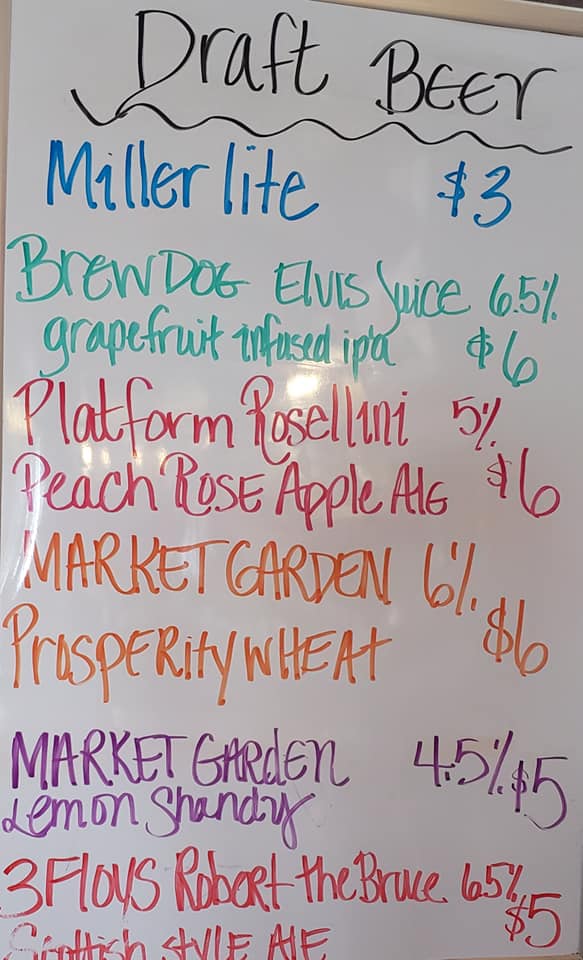 Draft BEEr
Miller lite $3
BrEWDOG ElVIS Juice 6.5%
grapefruit infused ipa $6
Platform Rosellini 5%
Peach ROSE Apple AlE $6
MARKET GARDEN 6%
ProsPERity WHEAt $6
MARKET GARdEN 4.5% $5
Lemon Shandy
3 FloyS Robert the Bruce 6.5%
Scottish StylE AlE $5